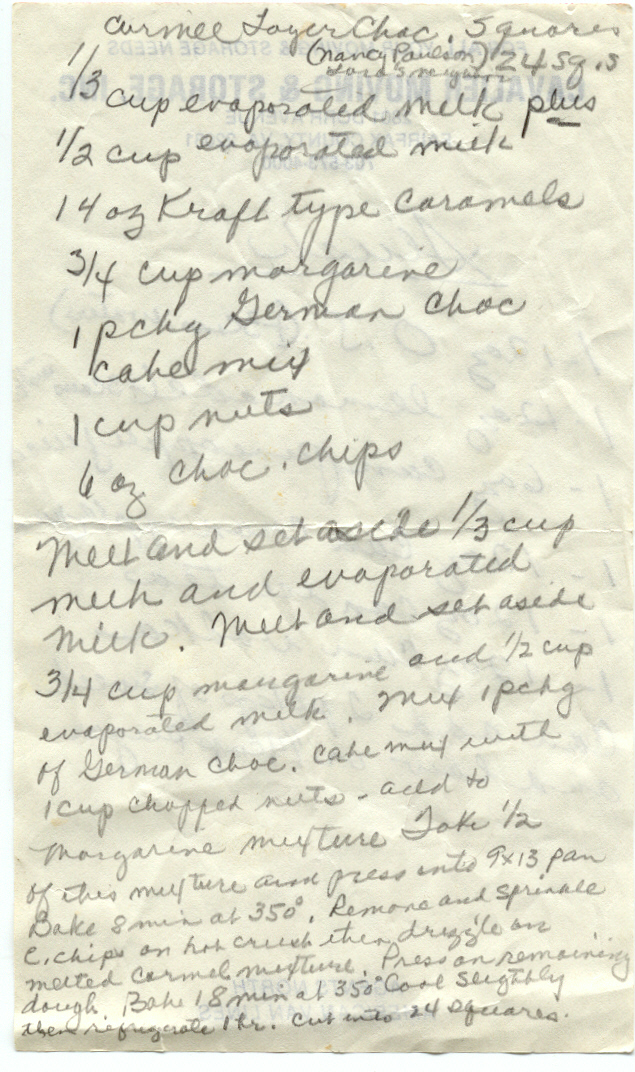 Carmel Layer Choc. Squares
(Nancy Paulson) 24 sq.s
1/3 cup evaporated milk plus
1/2 cup evaporated milk
14 oz Kraft type Caramels
3/4 cup margarine
1 pckg German Choc
cake mix
1 cup nuts
6 oz choc. chips
Melt and set aside 1/3 cup
and evaporated
milk. Melt and set aside
3/4 cup margarine and 1/2 cup
evaporated milk. Mix 1 pckg
of German Choc. cake mix with
1 cup chopped nuts - add to
margarine mixture Take 1/2
of this mixture and press into 9x13 pan
Bake 8 min at 350°. Remove and sprinkle
C. chips on hot crust then drizzle on
melted carmel mixture. Press on remaining
dough. Bake 18 min at 350° Cool slightly
then refrigerate 1 hr. Cut into 24 squares.